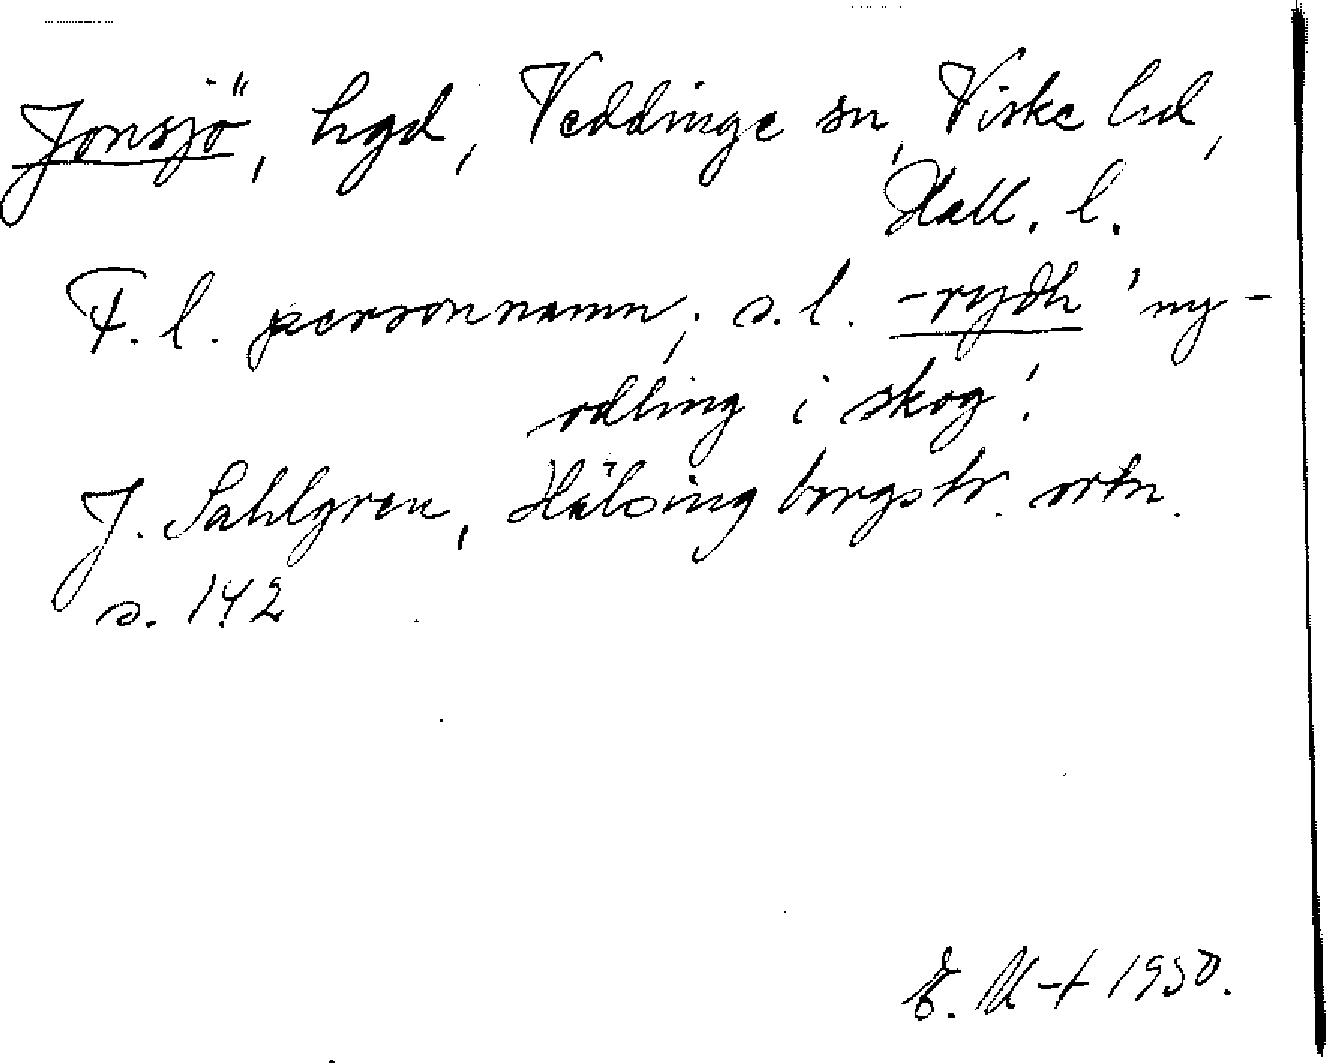 Jonsjö, hgd, Veddinge sn, Viske hd,
Hall. l.
F. l. personnamn; s. l. -rydh 'ny-
odling i skog'.
J. Sahlgren, Hälsingborgstr. ortn.
s. 142
1950.